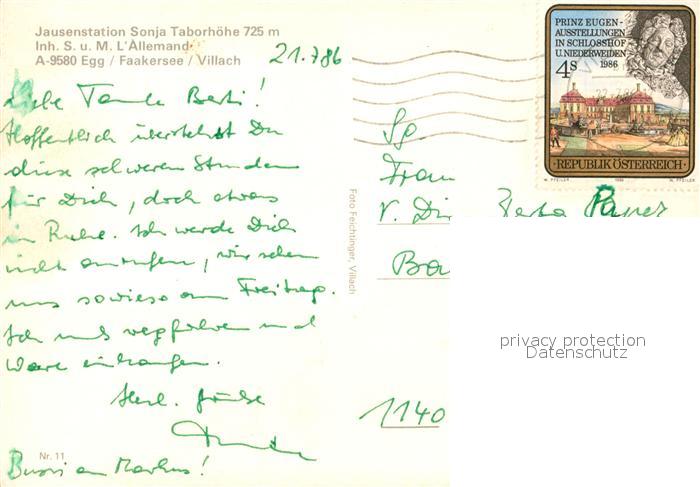 Jausenstation Sonja Taborhöhe 725 m
Inh. S. u. M. L'Allemand
A-9580 Egg / Faakersee / Villach
21.7.86
Liebe Tante Berti!
Hoffentlich überstehst Du
diese schweren Stunden
für Dich, doch etwas
in Ruhe. Ich werde Dich
nicht anrufen, wir sehen
uns sowieso am Freitag.
Ich muß wegfahren und
Ware einkaufen.
Herzl. Grüße
Bussi an Markus!
Nr. 11
Foto Feichtinger, Villach
PRINZ EUGEN-
AUSSTELLUNGEN
IN SCHLOSSHOF
U. NIEDERWEIDEN
1986
4s
REPUBLIK ÖSTERREICH
W. PFEILER 1986 W. PFEILER
Sg
Frau
V. Dir
Ba
1140
privacy protection
Datenschutz